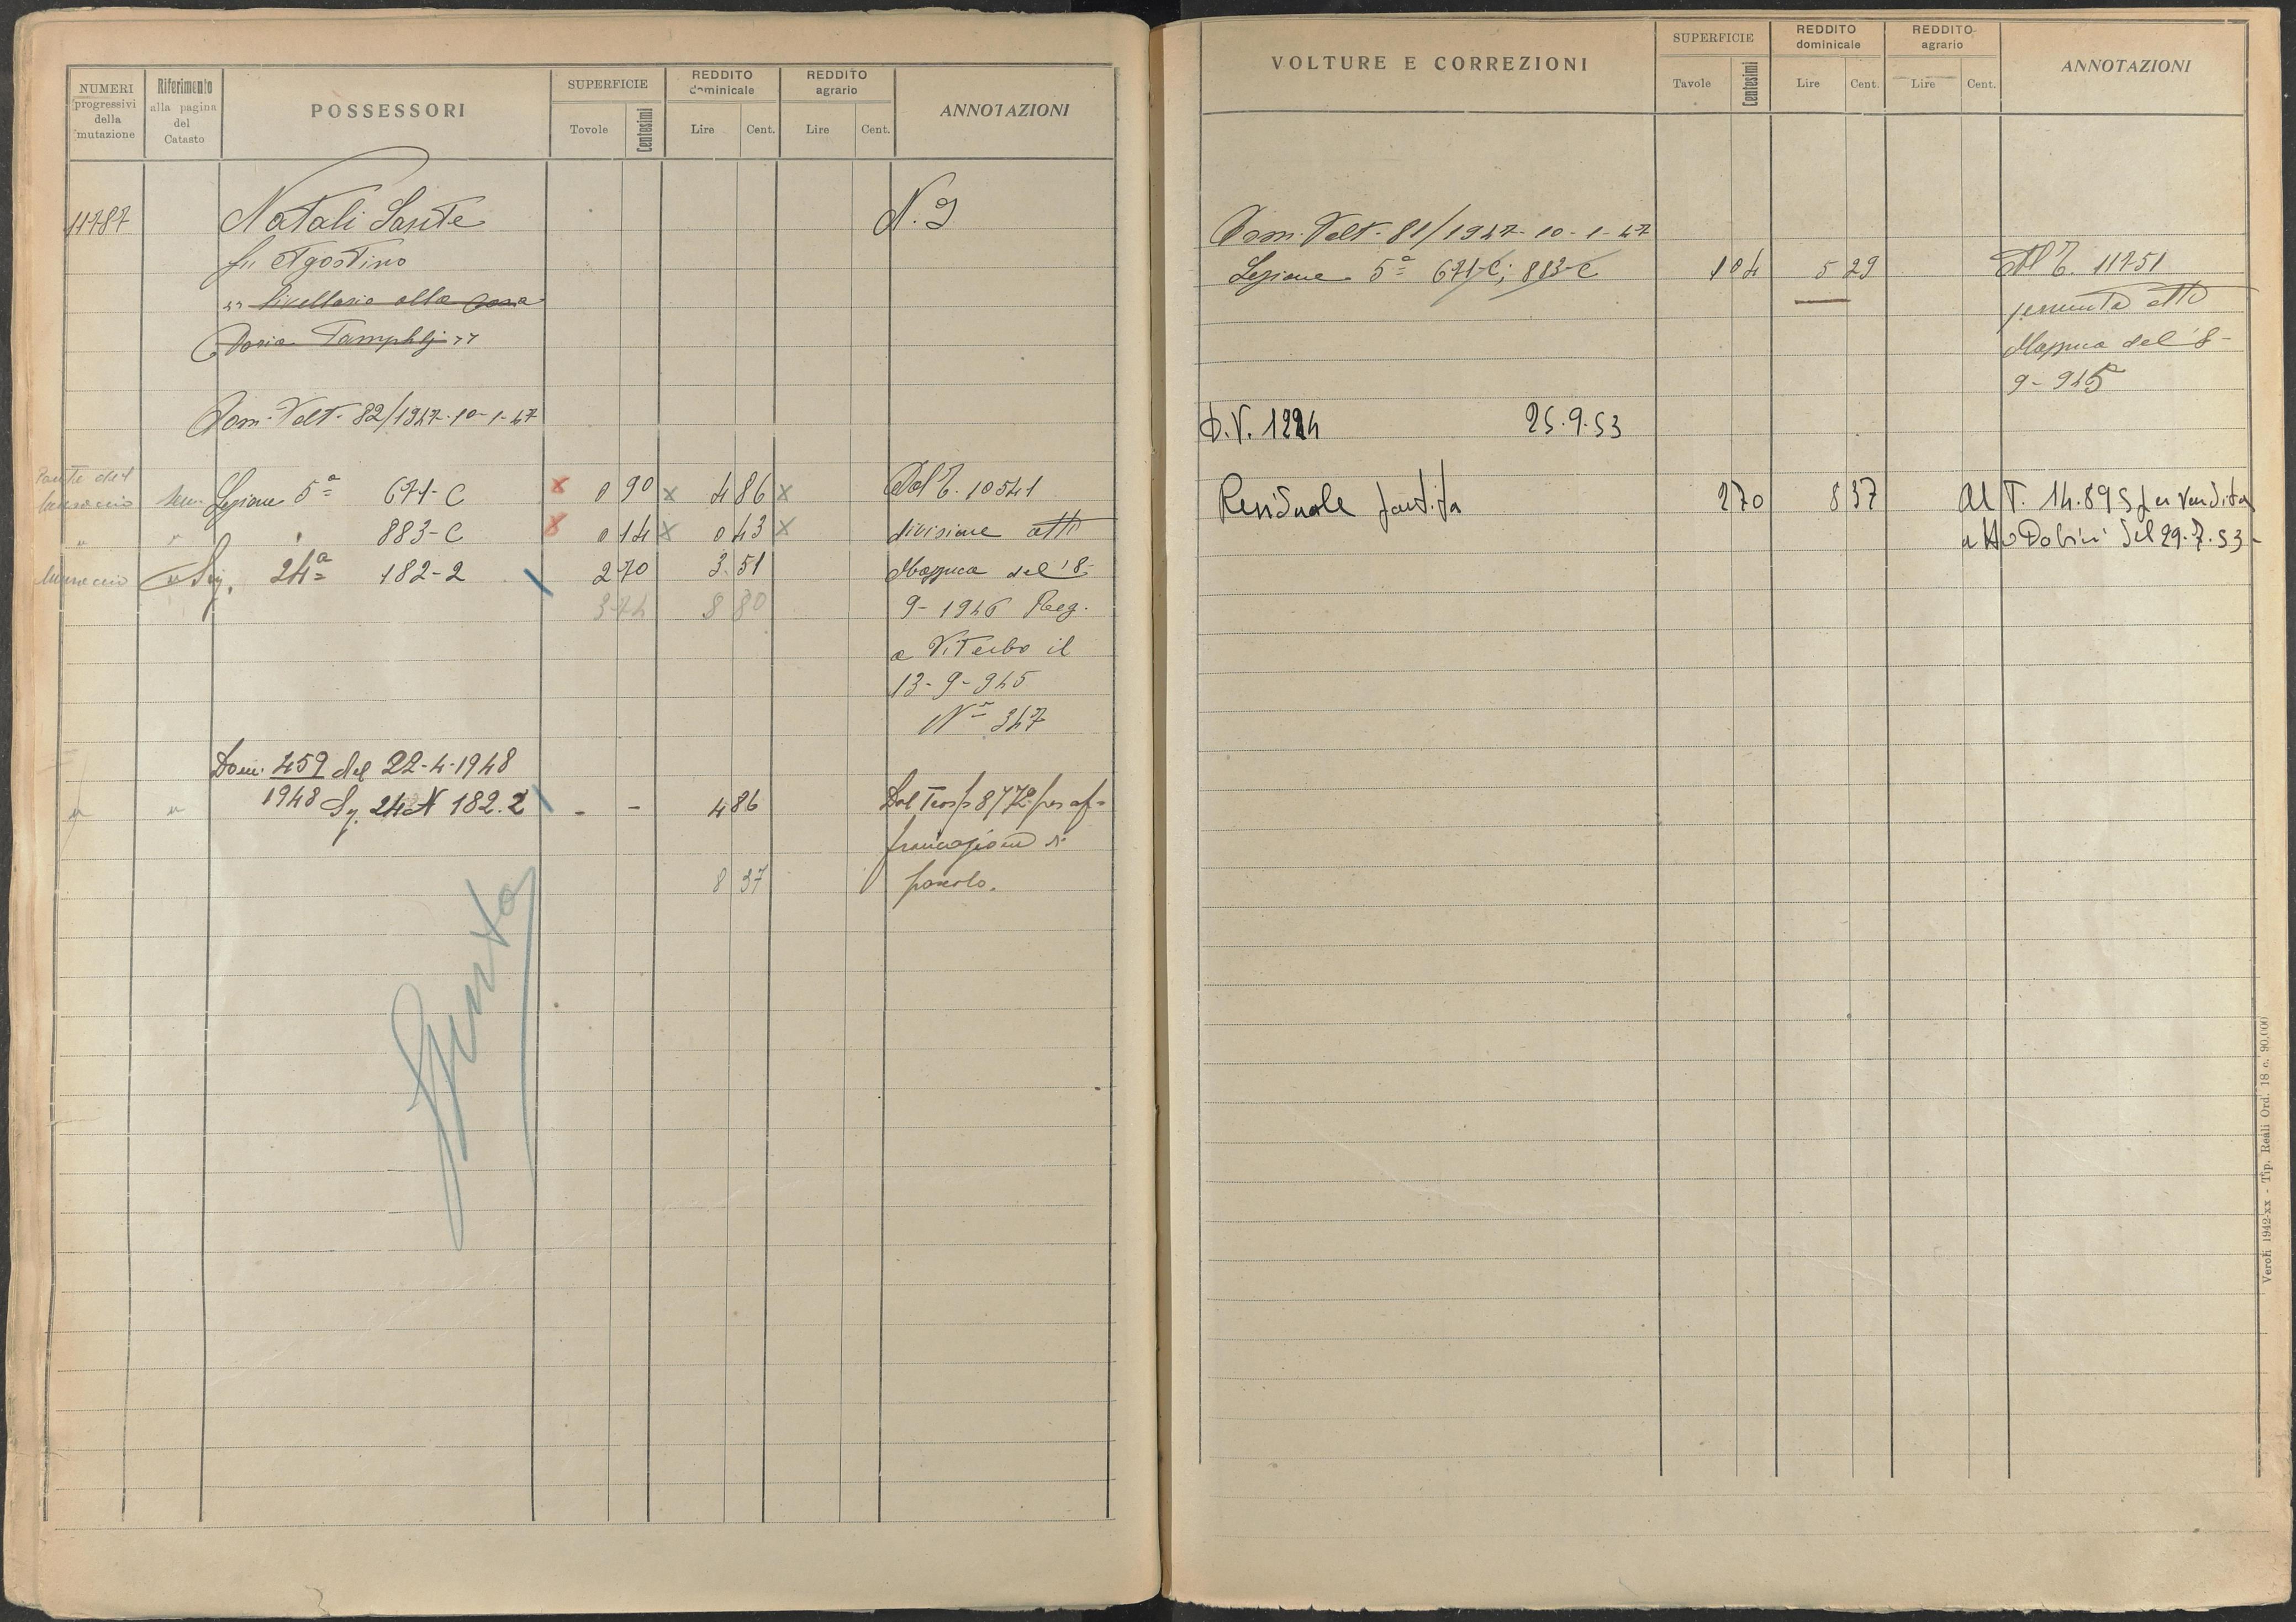 NUMERI progressivi della mutazione
Riferimento alla pagina del Catasto
POSSESSORI
SUPERFICIE
Tavole Centesimi
REDDITO dominicale
Lire Cent.
REDDITO agrario
Lire Cent.
ANNOTAZIONI
11787 Natali Sante N. 9
fu Agostino
" livellario alla casa
Doria Pamphlj "
Dom. Volt. 82/1947 10-1-47
Ponte del
Sem. Sezione 5ª 671-C 0 90 4 86 Dal T. 10541
" " 883-C 0 14 0 43 divisione atto
" Sez. 24ª 182-2 2 70 3 51 Mazzuca del 8-
3 74 8 80 9-1946 Reg.
a Viterbo il
13-9-945
Nº 347
Dom. 459 del 22-4-1948
" " 1948 Sez. 24 N 182.2 - - 4 86 Dal Trasp 8772 per af-
francazione di
8 37
Giunto
VOLTURE E CORREZIONI
SUPERFICIE
Tavole Centesimi
REDDITO dominicale
Lire Cent.
REDDITO agrario
Lire Cent.
ANNOTAZIONI
Dom. Volt. 81/1947 10-1-47
Sezione 5ª 671-C; 883-C 1 04 5 29 Al T. 11751
permuta atto
Mazzuca del 8-
9-945
D.V. 1224 25.9.53
Residuale partita 2 70 8 37 Al T. 14.895 per vendita
atto Dobici del 29.7.53-
Veroli 1942-xx - Tip. Reali Ord. 18 c. 90.000